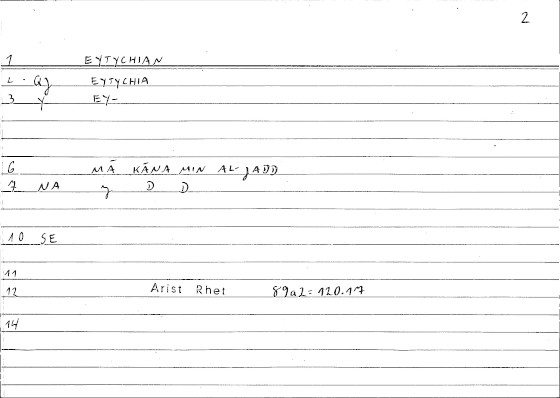 2
1 EYTYCHIAN
2 · QJ EYTYCHIA
3 Y EY-
6 MĀ KĀNA MIN AL-JADD
7 NA J D D
10 SE
11
12 Arist Rhet 89a2=120.17
14